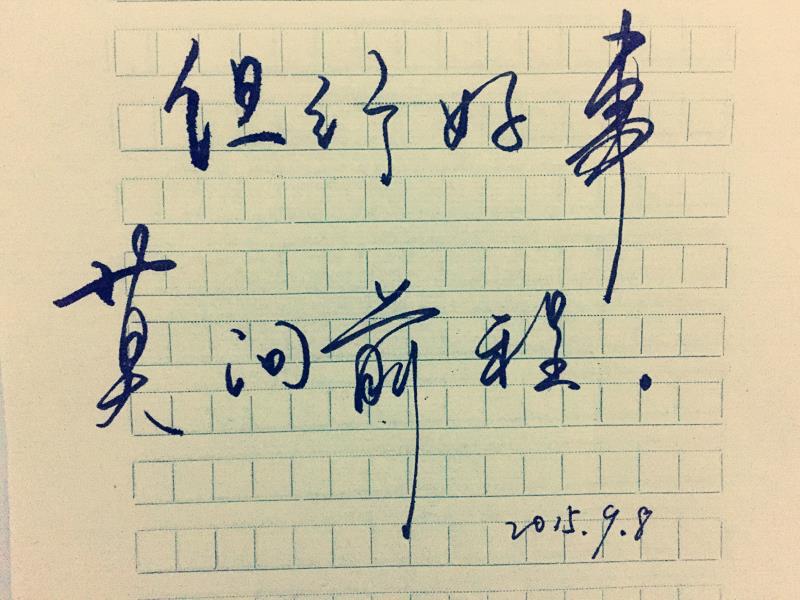 但行好事
莫问前程.
2015.9.8